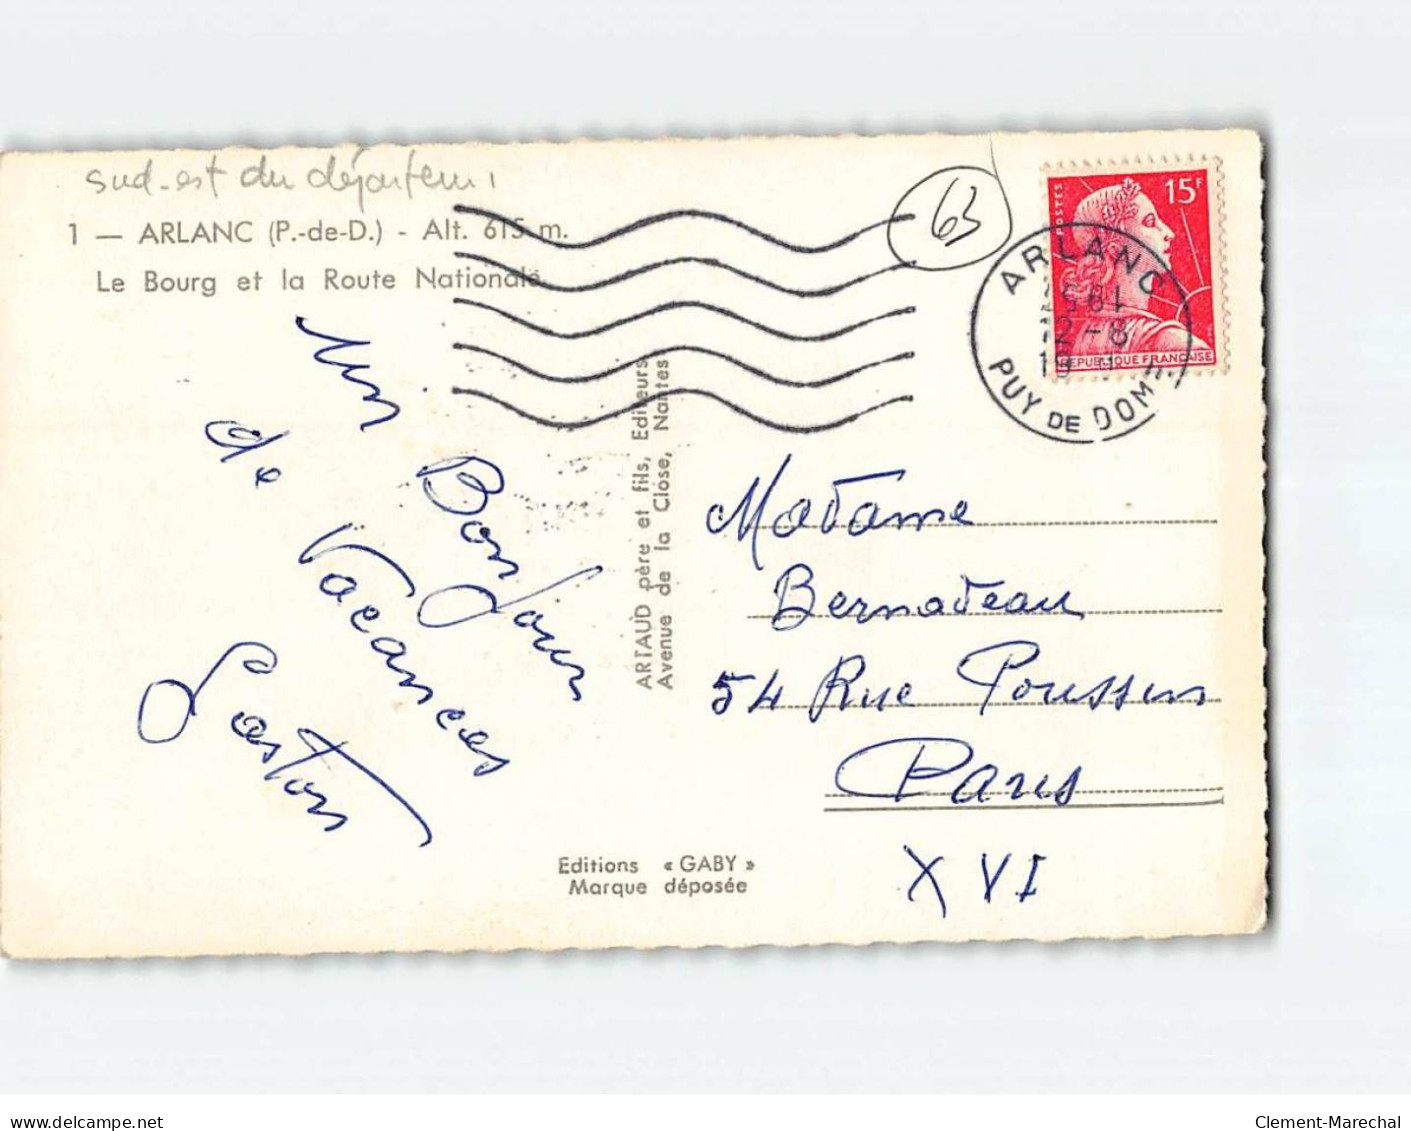 sud-est du départem.
1 — ARLANC (P.-de-D.) - Alt. 615 m.
Le Bourg et la Route Nationale
63
POSTES
15F
REPUBLIQUE FRANÇAISE
ARLANC
PUY DE DOME
un BonJour
de Vacances
Gaston
ARIAUD père et fils, Editeurs
Avenue de la Close, Nantes
Madame
Bernadeau
54 Rue Poussin
Paris
XVI
Editions « GABY »
Marque déposée
www.delcampe.net
Clement-Marechal